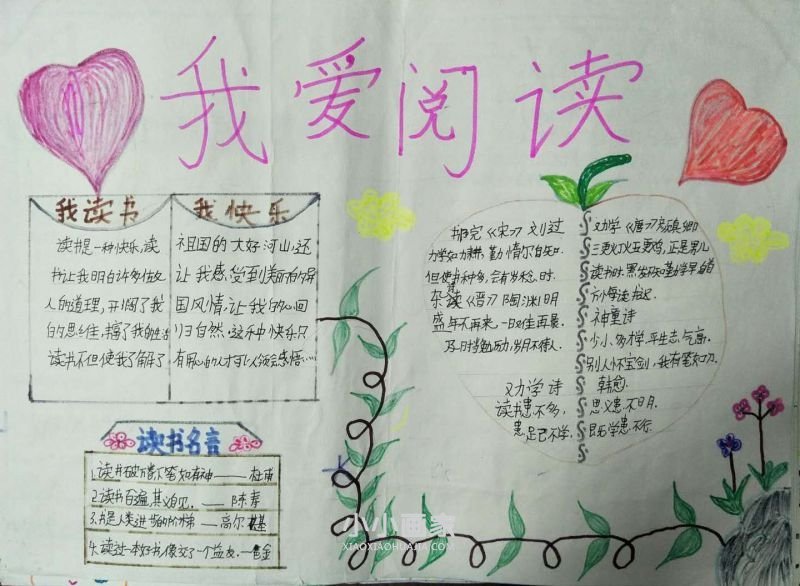 我爱阅读
我读书 我快乐
读书是一种快乐,读
书让我明白许多做
人的道理,开阔了我
的思维,丰富了我的生活
读书不但使我了解了
祖国的大好河山,还
让我感受到美丽的
国风情,让我的心回
归自然。这种快乐只
有用心的人才可以领会感悟……
读书名言
1.读书破万卷下笔如有神——杜甫
2.读书百遍,其义自见.——陈寿
3.书是人类进步的阶梯——高尔基
4.读过一本好书,像交了一个益友.—
《宋》刘过
力学如力耕,勤惰尔自知.
但使书种多,会有岁稔时.
杂诗《晋》陶渊明
盛年不再来,一日难再晨.
及时当勉励,岁月不待人.
劝学诗
读书患不多,
患足已不学,
劝学《唐》颜真卿
三更灯火五更鸡,正是男儿
读书时.黑发不知勤学早,白首
方悔读书迟.
神童诗
少小多才学,平生志气高.
别人怀宝剑,我有笔如刀.
韩愈
思义患不明.
既学患不行.
小小画家
XIAOXIAOHUAJIA.COM